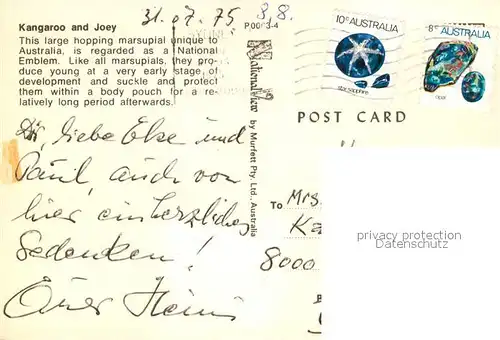 31.07.75 8,8.
Kangaroo and Joey
This large hopping marsupial unique to
Australia, is regarded as a National
Emblem. Like all marsupials, they pro-
duce young at a very early stage of
development and suckle and protect
them within a body pouch for a re-
latively long period afterwards.
10c AUSTRALIA
star sapphire
8c AUSTRALIA
opal
National View by Murfett Pty. Ltd., Australia
POST CARD
Dir, liebe Elke und
Paul, auch von
hier ein herzliches
Gedenken!
Euer Heini
To Mrs.
8000
privacy protection
Datenschutz